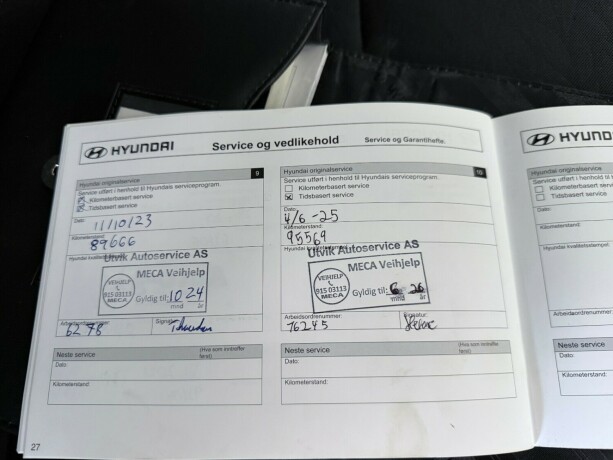 HYUNDAI
Service og vedlikehold
Service og Garantihefte.
Hyundai originalservice
9
Service utført i henhold til Hyundais serviceprogram:
Kilometerbasert service
Tidsbasert service
Dato:
11/10/23
Kilometerstand:
89666
Utvik Autoservice AS
MECA Veihjelp
VEIHJELP
915 03113
MECA
Gyldig til: 10 24
mnd år
Arbeidsordrenummer:
6278
Signatur
Neste service
(Hva som inntreffer først)
Dato:
Kilometerstand:
27
Hyundai originalservice
10
Service utført i henhold til Hyundais serviceprogram:
Kilometerbasert service
Tidsbasert service
Dato:
4/6-25
Kilometerstand:
95569
Utvik Autoservice AS
MECA Veihjelp
VEIHJELP
915 03113
MECA
Gyldig til: 6 26
mnd år
Arbeidsordrenummer:
76245
Signatur
Neste service
(Hva som inntreffer først)
Dato:
Kilometerstand:
HYUND
Hyundai originalservice
Service utført i henhold til Hyund
Kilometerbasert service
Tidsbasert service
Dato:
Kilometerstand:
Hyundai kvalitetsstempel:
Arbeidsordrenummer:
Neste service
Dato:
Kilometerstand: